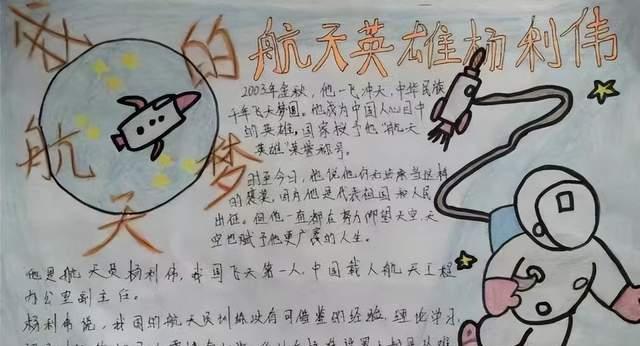 我的航天梦
航天英雄杨利伟
2003年金秋，他一飞冲天，中华民族
千年飞天梦圆。他成为中国人心目中
的英雄，国家授予他"航天
英雄"荣誉称号。
时至今日，他说他仍无法承当这样
的褒奖，因为他是代表祖国和人民
出征。但他一直都在努力仰望太空，太
空也赋予他更广袤的人生。
他是航天员杨利伟，我国飞天第一人，中国载人航天工程
办公室副主任。
杨利伟说，我国的航天员训练没有可借鉴的经验，理论学习，